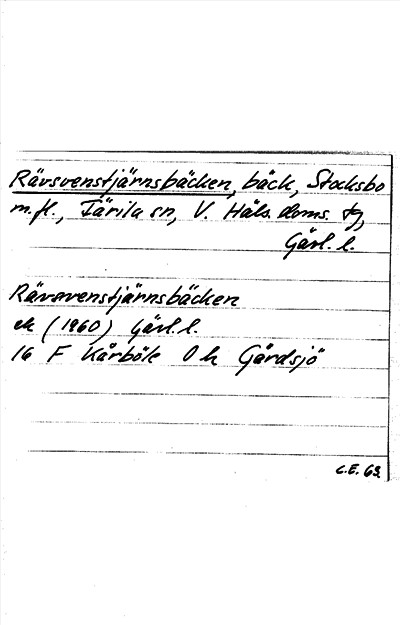 Rävsvenstjärnsbäcken, bäck, Stocksbo
m.fl., Färila sn, V. Häls. doms. tg,
Gävl. l.
Rävsvenstjärnsbäcken
ek (1960) Gävl. l.
16 F Kårböle Ö h Gårdsjö
C.E. 63.